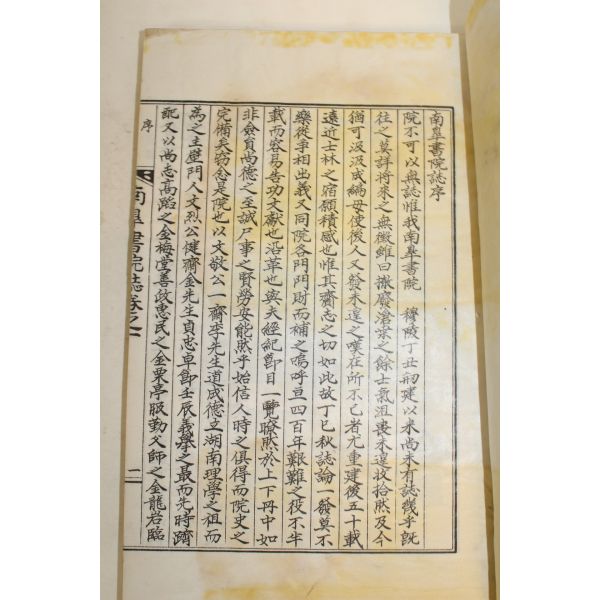 南皐書院誌序
院不可以無誌惟我南皐書院 穆陵丁丑刱建以來尚未有誌幾乎旣
往之莫詳將來之無徵維曰撤廢滄桑之餘士氣沮喪未遑收拾然及今
猶可汲汲成編毋使後人又發未遑之嘆在所不已者尤重建後五十載
遠近士林之宿願積感也惟其齋志之切如此故丁巳秋誌論一發莫不
樂從爭相出義又同院各門門財而補之嗚呼亘四百年艱難之役不半
載而容易告功文獻也沿革也與夫經紀節目一覽瞭然於上下冊中如
非僉員尚德之至誠尸事之賢勞安能然乎始信人時之俱得而院史之
完備矣窃念是院也以文敬公一齋李先生道成德立湖南理學之祖而
為之主壁門人文烈公健齋金先生貞忠卓節壬辰義擧之最而先時躋
配又以尚志高蹈之金梅堂善政惠民之金栗亭服勤父師之金龍岩臨
序
南皐書院誌卷之一
二